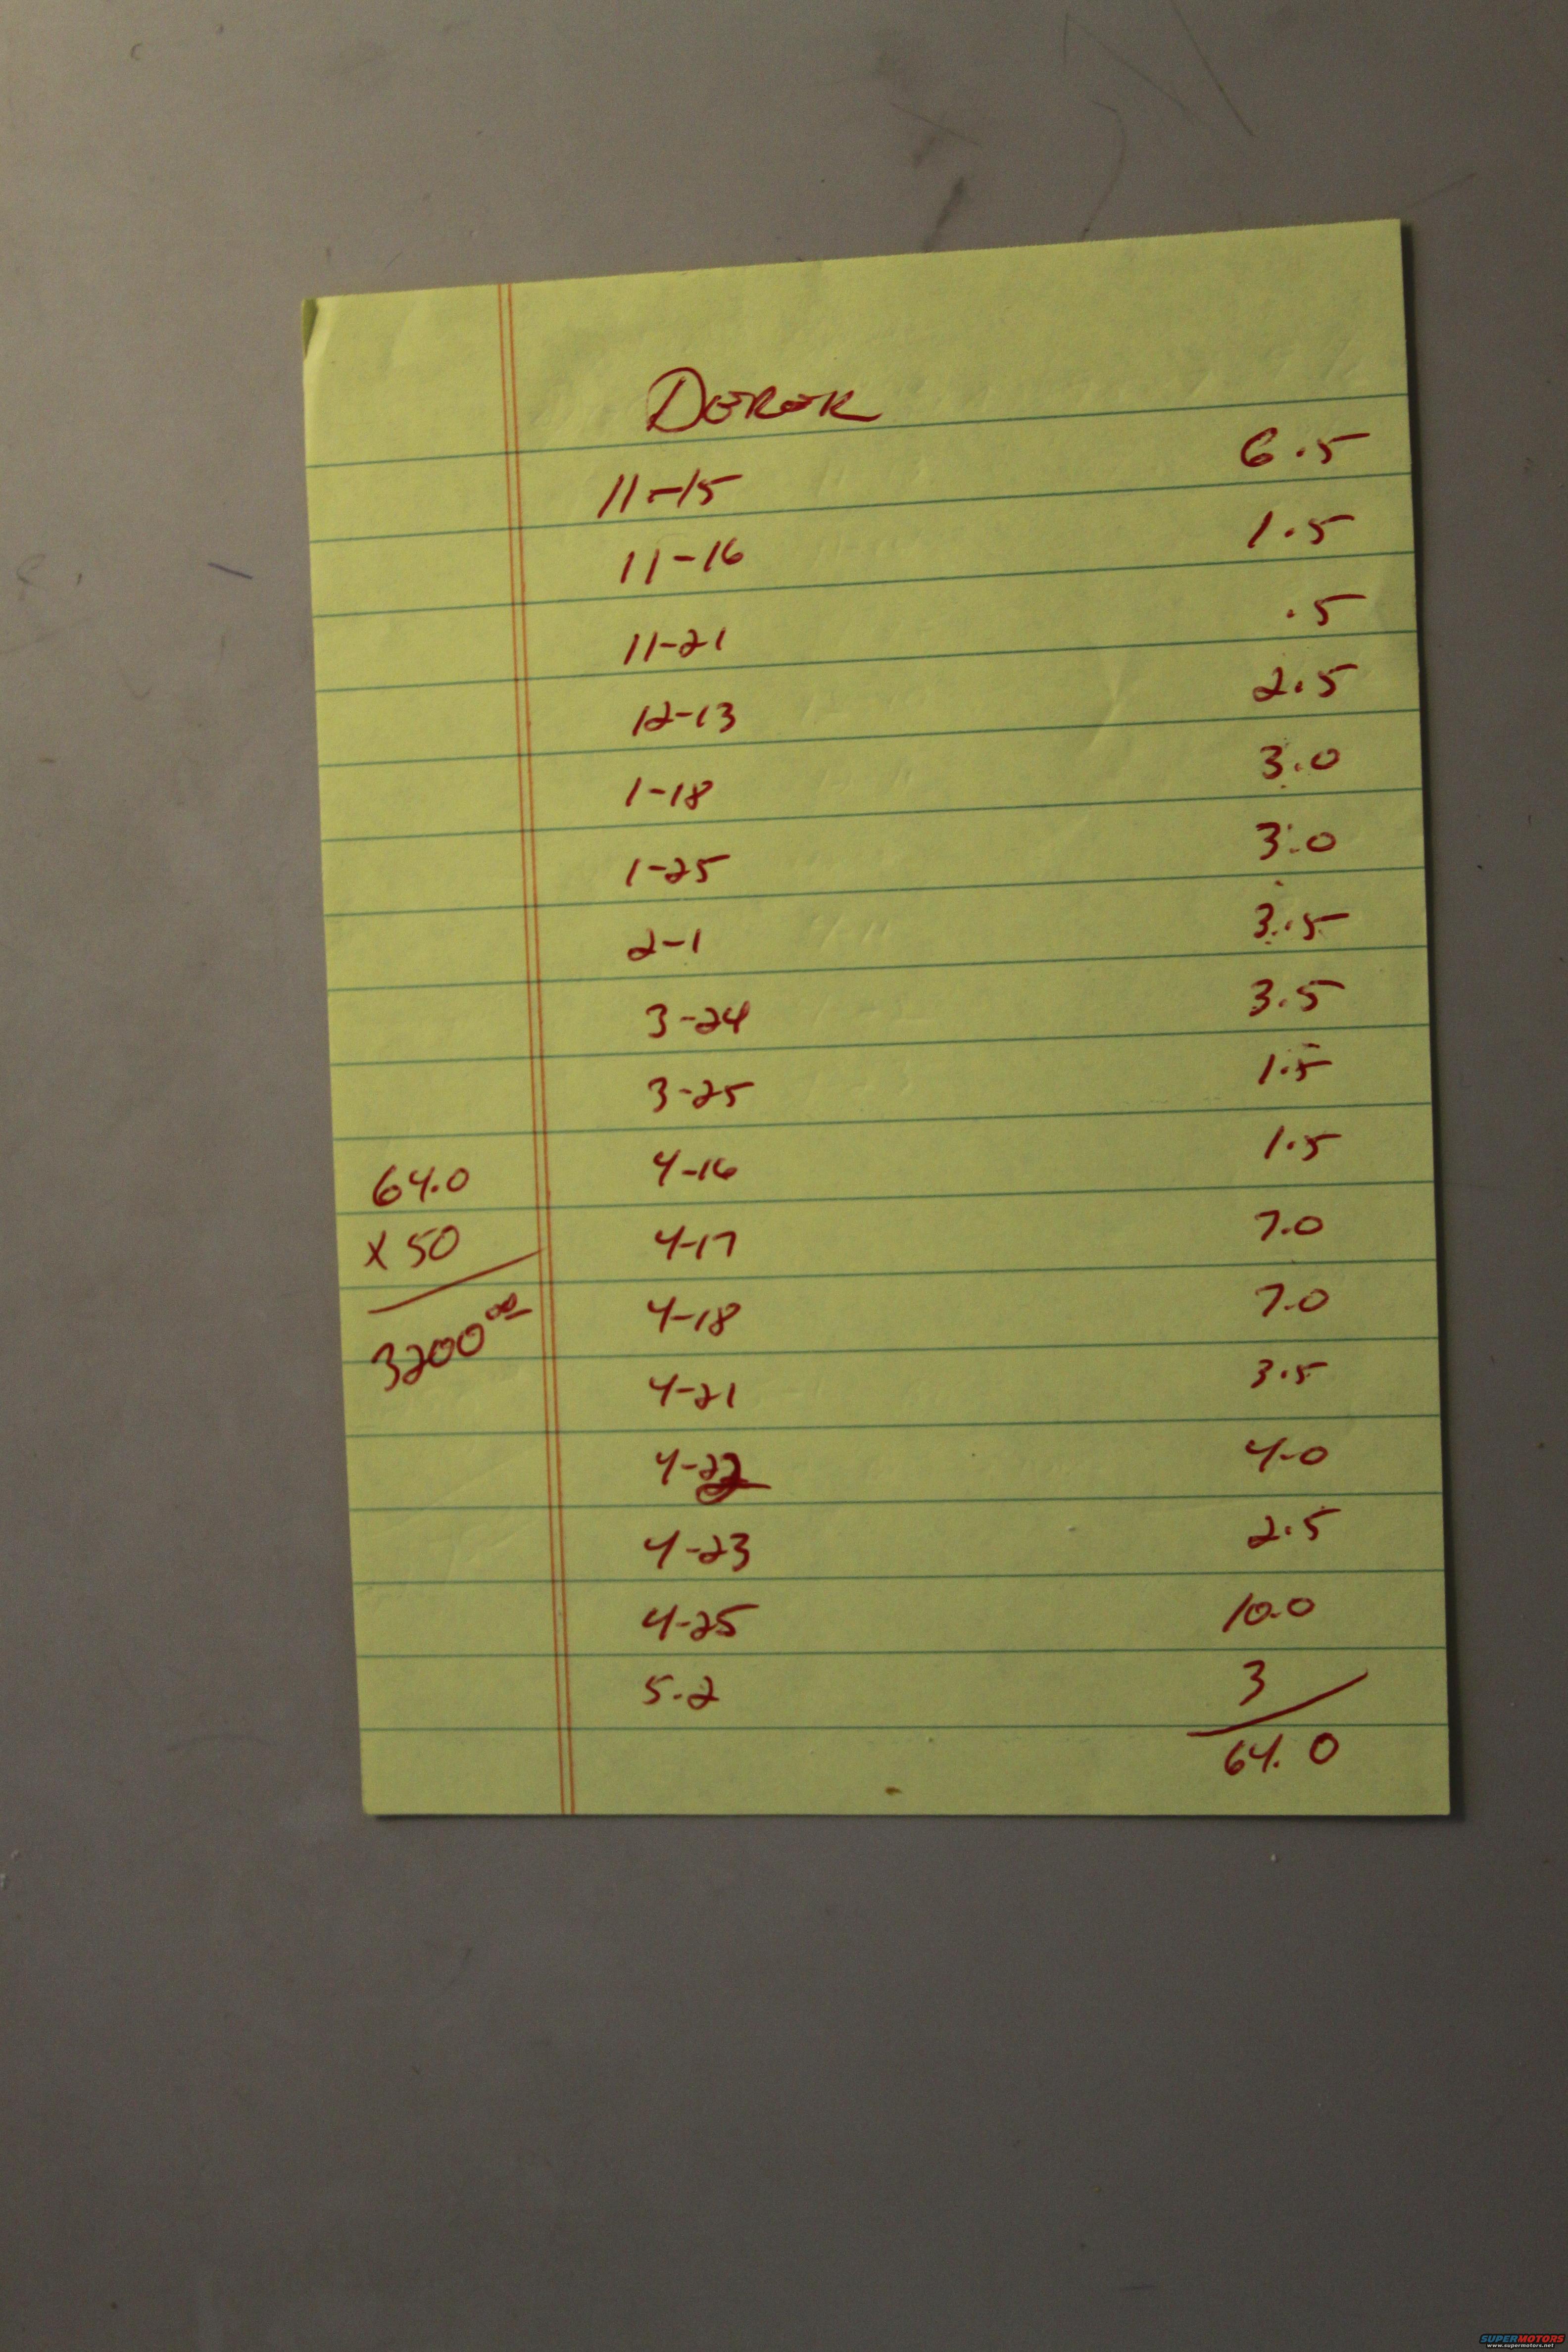 DEREK
11-15 6.5
11-16 1.5
11-21 .5
12-13 2.5
1-18 3.0
1-25 3.0
2-1 3.5
3-24 3.5
3-25 1.5
4-16 1.5
4-17 7.0
4-18 7.0
4-21 3.5
4-22 4.0
4-23 2.5
4-25 10.0
5.2 3
64.0
64.0
x 50
3200 00
SUPERMOTORS
www.supermotors.net